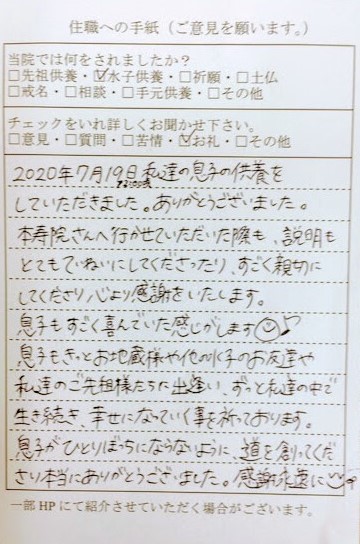 住職への手紙（ご意見を願います。）
当院では何をされましたか？
□先祖供養・☑水子供養・□祈願・□土仏
□戒名・□相談・□手元供養・□その他
チェックをいれ詳しくお聞かせ下さい。
□意見・□質問・□苦情・☑お礼・□その他
2020年7月19日 私達の息子の供養を
していただきました。ありがとうございました。
本寿院さんへ行かせていただいた際も、説明も
とてもていねいにしてくださったり、すごく親切に
してくださり心より感謝をいたします。
息子もすごく喜んでいた感じがします
息子もきっとお地蔵様や他の水子のお友達や
私達のご先祖様たちに出逢い、ずっと私達の中で
生き続き、幸せになっていく事を祈っております。
息子がひとりぼっちにならないように、道を創ってくだ
さり本当にありがとうございました。感謝永遠に
一部HPにて紹介させていただく場合がございます。